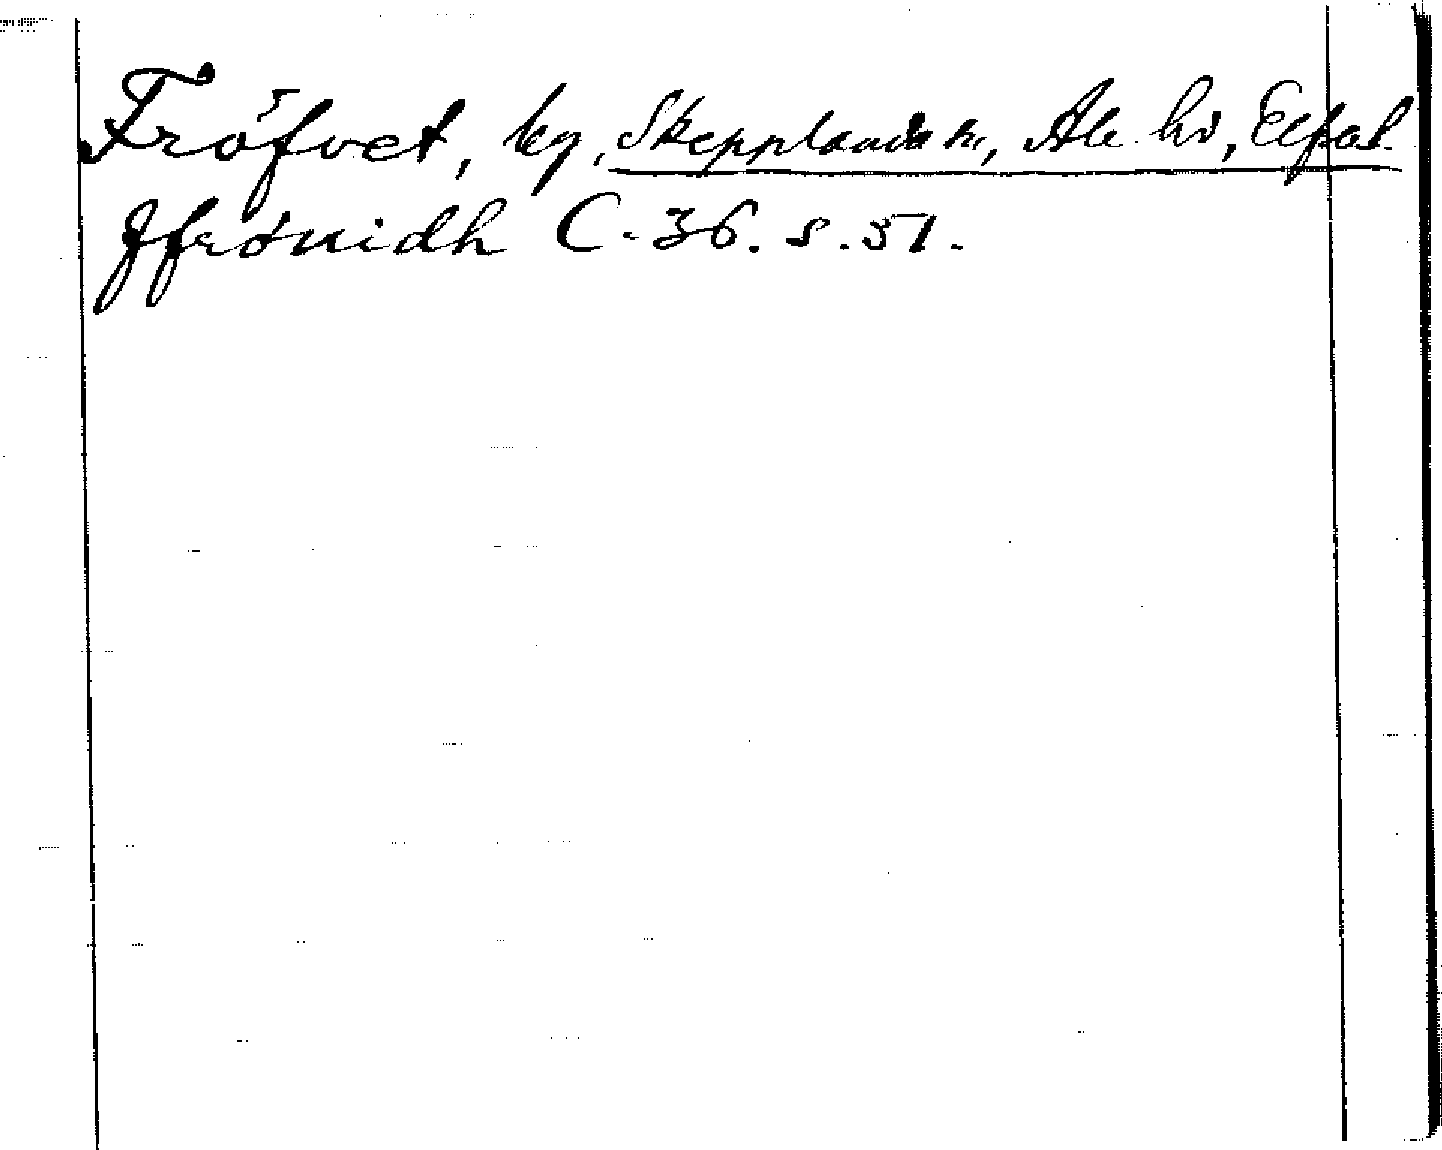 Fröfvet, by, Skepplanda sn, Ale hd, Elfsb.
Jfrönidh C. 36. s. 51.